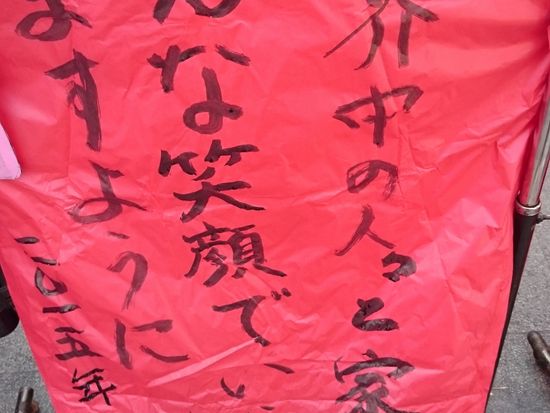 界中の人々と家
んな笑顔でい
ますように
二〇一五年